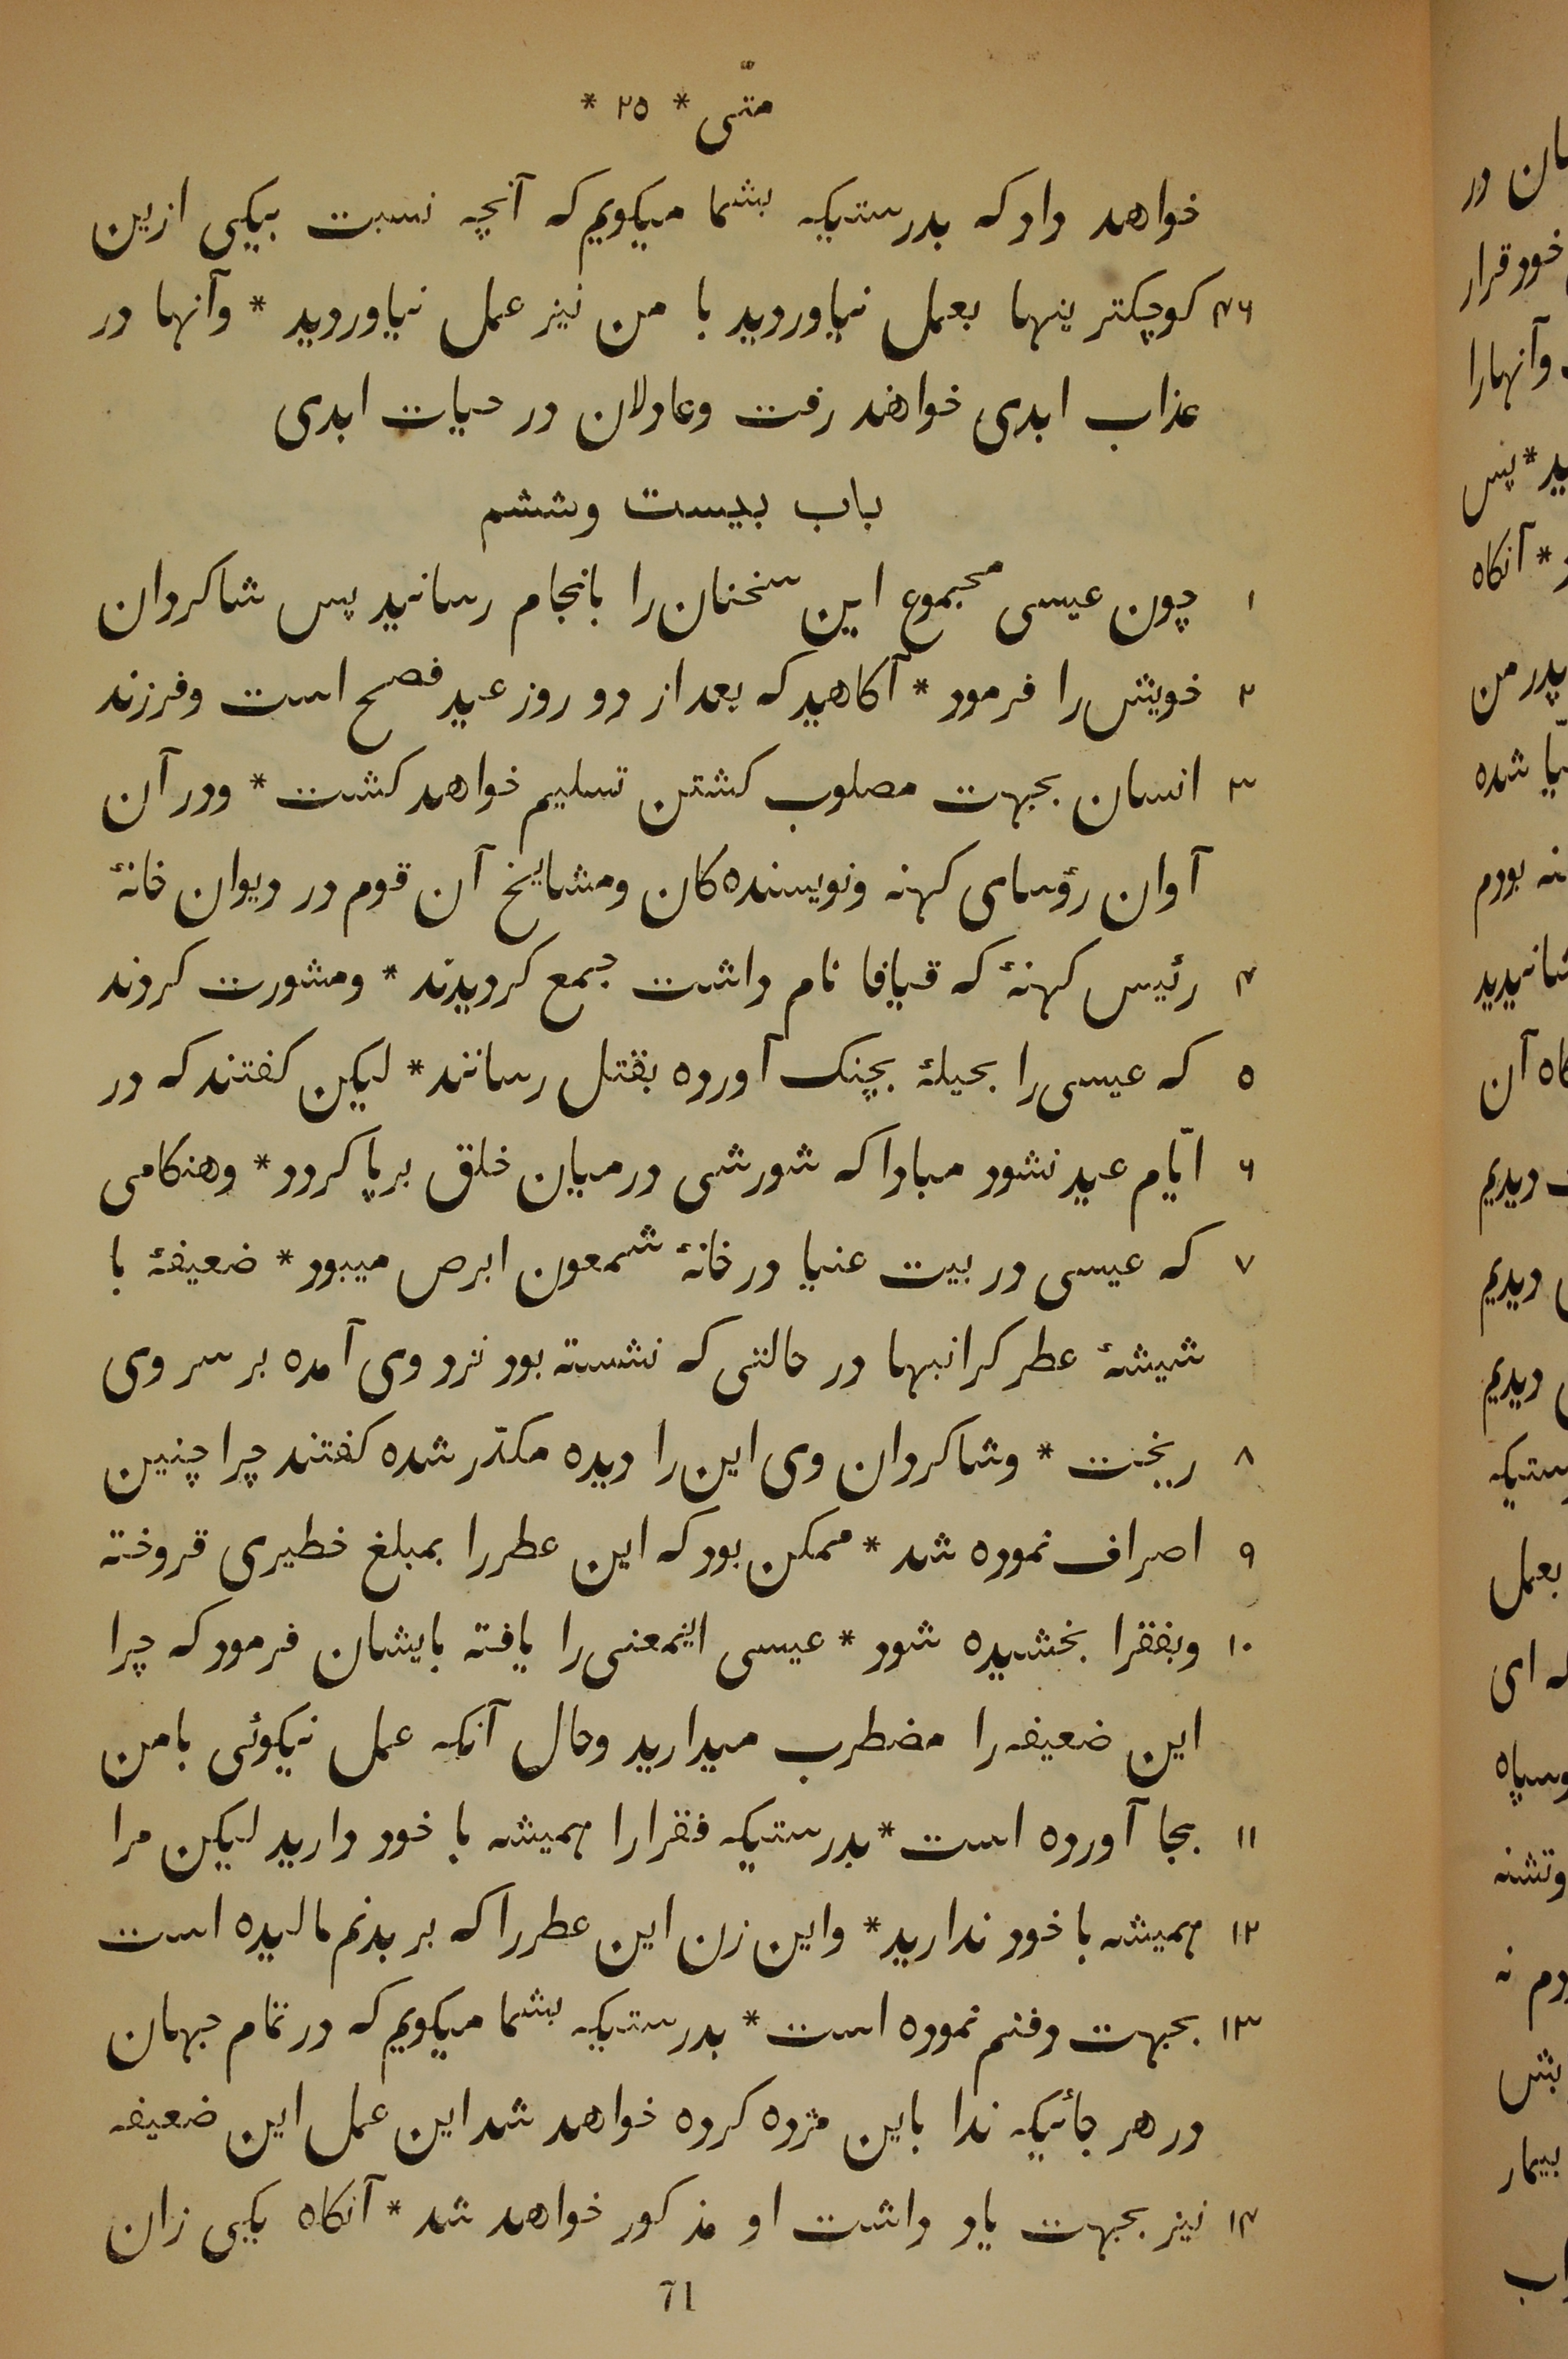 متّی * ۲۵ *
خواهد داد که بدرستیکه بشما میکویم که آنچه نسبت بیکی ازین
۴۶ کوچکتر ینها بعمل نیاوردید با من نیز عمل نیاوردید * وآنها در
عذاب ابدی خواهند رفت وعادلان در حیات ابدی
باب بیست وششم
۱ چون عیسی مجموع این سخنان را بانجام رسانید پس شاکردان
۲ خویش را فرمود * آکاهید که بعد از دو روز عید فصح است وفرزند
۳ انسان بجهت مصلوب کشتن تسلیم خواهد کشت * ودر آن
آوان رؤسای کهنه ونویسنده کان ومشایخ آن قوم در دیوان خانهٔ
۴ رئیس کهنهٔ که قیافا نام داشت جمع کردیدند * ومشورت کردند
۵ که عیسی را بحیلهٔ بچنک آورده بقتل رسانند * لیکن کفتند که در
۶ ایّام عید نشود مبادا که شورشی درمیان خلق برپا کردد * وهنکامی
۷ که عیسی در بیت عنیا در خانهٔ شمعون ابرص میبود * ضعیفهٔ با
شیشهٔ عطر کرانبها در حالتی که نشسته بود نزد وی آمده بر سر وی
۸ ریخت * وشاکردان وی این را دیده مکدّر شده کفتند چرا چنین
۹ اصراف نموده شد * ممکن بود که این عطر را بمبلغ خطیری فروخته
۱۰ وبفقرا بخشیده شود * عیسی اینمعنی را یافته بایشان فرمود که چرا
این ضعیفه را مضطرب میدارید وحال آنکه عمل نیکوئی بامن
۱۱ بجا آورده است * بدرستیکه فقرا را همیشه با خود دارید لیکن مرا
۱۲ همیشه با خود ندارید * واین زن این عطر را که بر بدنم مالیده است
۱۳ بجهت دفنم نموده است * بدرستیکه بشما میکویم که در تمام جهان
در هر جائیکه ندا باین مژده کرده خواهد شد این عمل این ضعیفه
۱۴ نیز بجهت یاد داشت او مذکور خواهد شد * آنکاه یکی زان
71
خود قرار
وآنهارا
پس
* آنکاه
پدر من
شده
بودم
آن
دیدیم
دیدیم
دیدیم
بعمل
ای
وتشنه
نه
بیمار